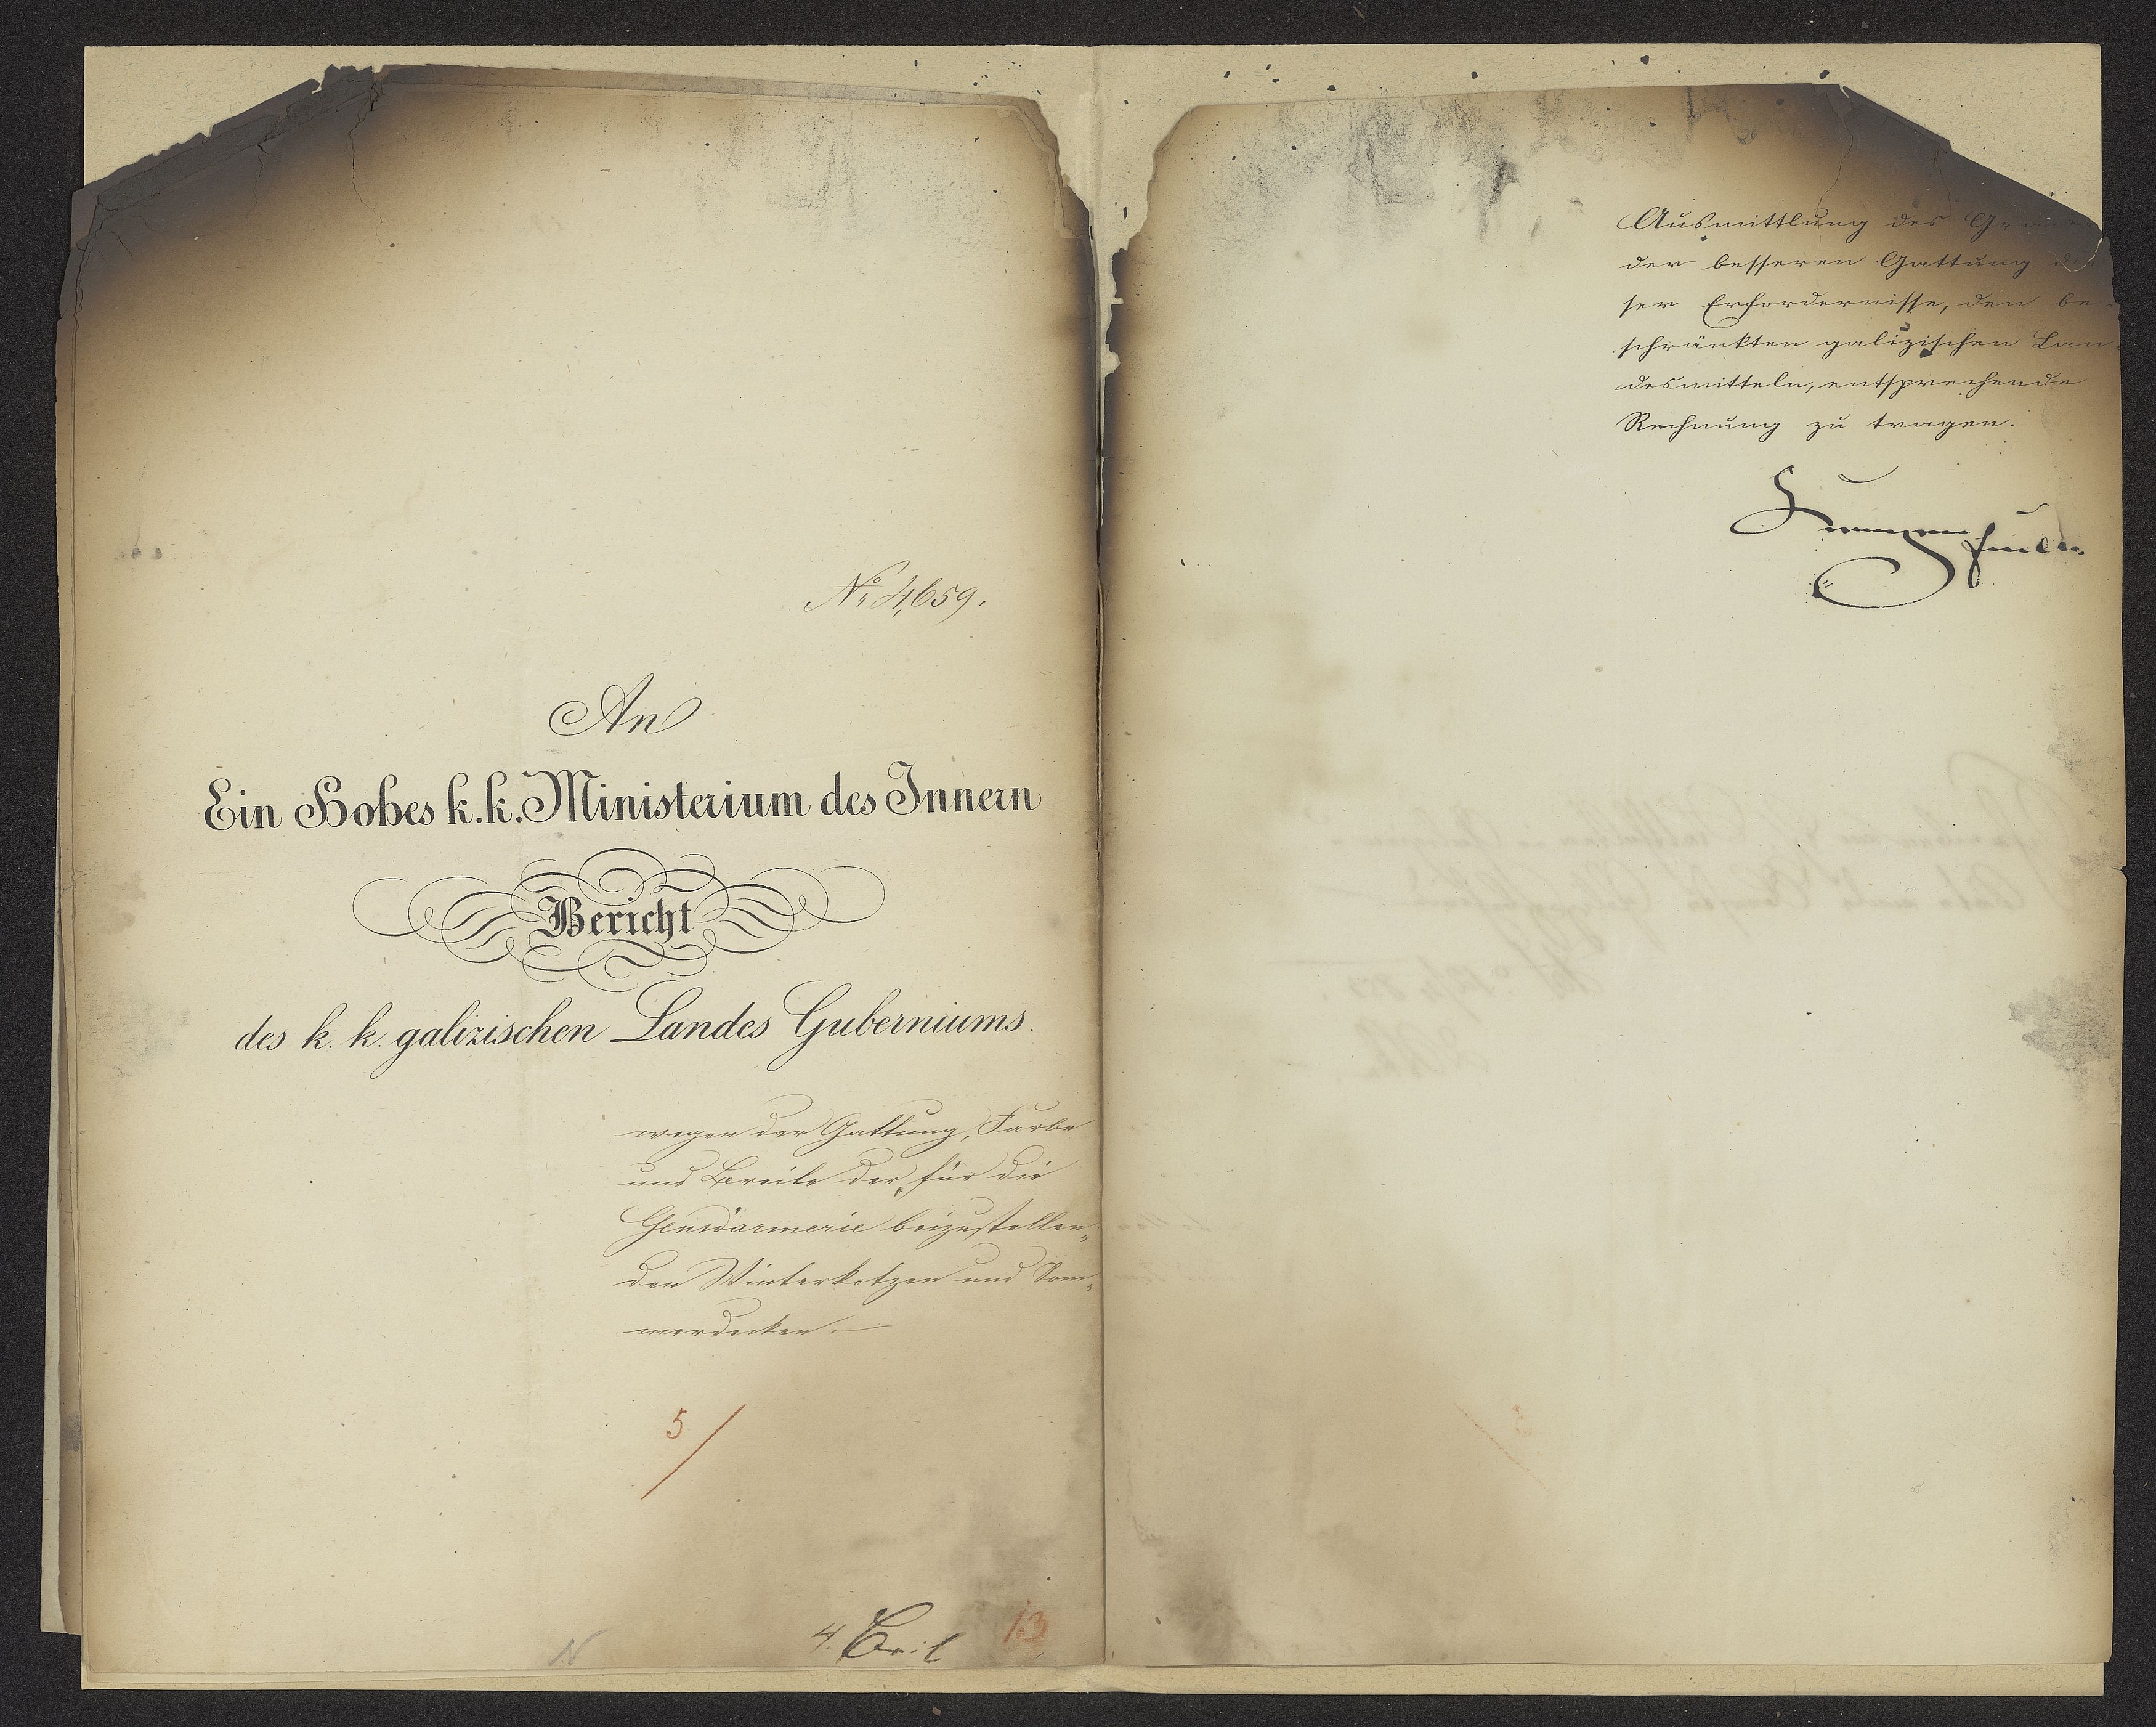 No 4,659.
An
Ein Hohes k. k. Ministerium des Innern
Bericht
des k. k. galizischen Landes Guberniums.
wegen der Gattung, Farbe
und Breite der, für die
Gensdarmerie beizustellen„
den Winterkotzen und Som„
merdecken.—
5/
4.
13
N
Ausmittlung des
der besseren Gattung
ser Erfordernisse, den be-
schränkten galizischen Lan-
desmitteln, entsprechende
Rechnung zu tragen.